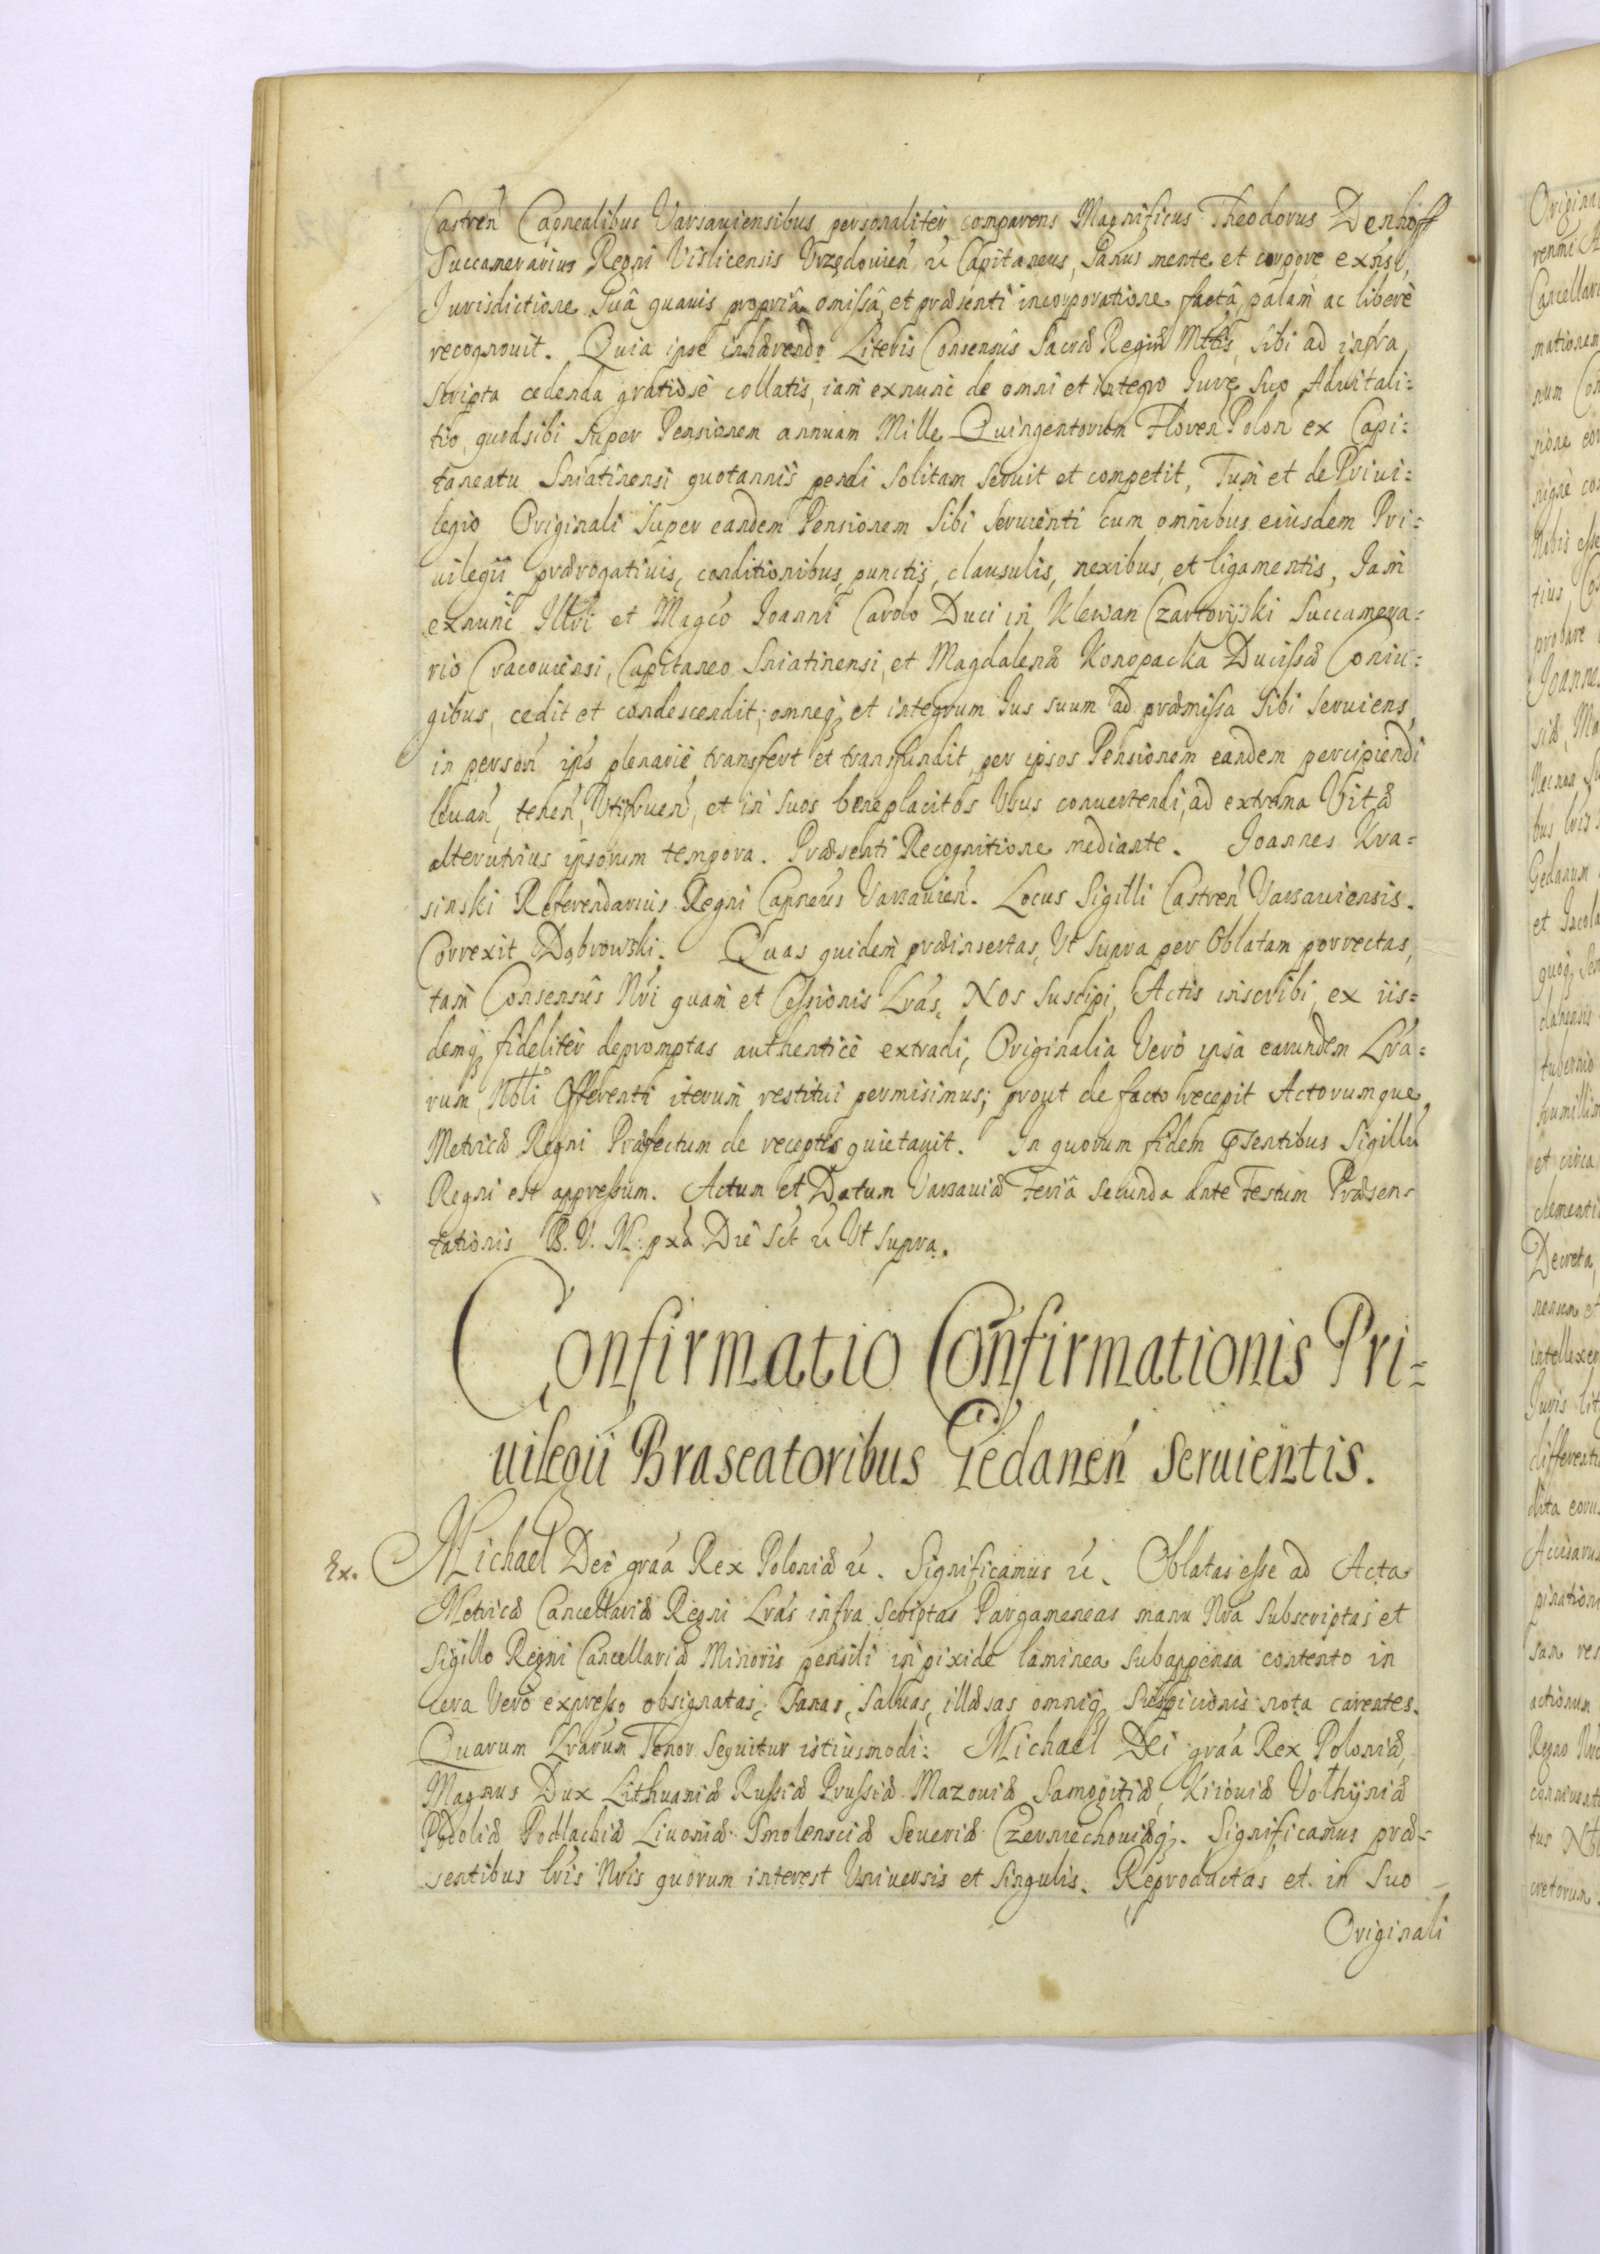 Castren̄ Capnealibus Varsauiensibus personaliter comparens Magnificus Theodorus Denhoff
Succamerarius Regni Vislicensis Vrzędouien̄ &c Capitaneus, Sanus mente et corpore exn̄s,
Jurisdictione suâ quauis propriâ omissâ, et præsenti incorporatione factâ, palam ac liberè
recognouit. Quia ipse inhærendo Literis Consensûs Sacræ Regiæ Mttis, sibi ad infra
scripta cedenda gratiosè collatis, iam exnunc de omni et integro Jure suo Aduitali:
tio, quod sibi super Pensionem annuam Mille Quingentorum Floren Polon̄ ex Capi:
taneatu Sniatinensi quotannis pendi solitam seruit et competit, Tum et de Priui:
legio Originali super eandem Pensionem sibi seruienti cum omnibus eiusdem Pri:
uilegii prærogatiuis, conditionibus, punctis, clausulis, nexibus, et ligamentis, Jam
exnunc Illri et Magco Joanni Carolo Duci in Klewan Czartoryski Succamera:
rio Cracouiensi, Capitaneo Sniatinensi, et Magdalenæ Konopacka Ducissæ Coniu:
gibus, cedit et condescendit; omneq; et integrum Jus suum ad præmissa sibi seruiens,
in person̄ ips̄ plenariè transfert et transfundit, per ipsos Pensionem eandem percipiendi
leuan̄, tenen̄, Vtifruen̄, et in suos beneplacitos Vsus conuertendi, ad extrema Vitæ
alterutrius ipsorum tempora. Præsenti Recognitione mediante. Joannes Kra=
sinski Referendarius Regni Capneus Varsauien̄. Locus Sigilli Castren̄ Varsauiensis.
Correxit Dąbrowski. Quas quidem præinsertas, Vt supra per Oblatam porrectas,
tam Consensûs Nri quam et Cessionis Lras, Nos suscipi, Actis inscribi, ex iis=
demq; fideliter depromptas authenticè extradi, Originalia Verò ipsa earundem Lra=
rum Nbli Offerenti iterum restitui permisimus; prout de facto recepit Actorumque
Metricæ Regni Præfectum de receptis quietauit. In quorum fidem p̄sentibus Sigillū
Regni est appressum. Actum et Datum Varsauiæ Feriâ Secunda ante Festum Præsen=
tationis B. V. M. pxa Die Sct &c Vt supra.
Confirmatio Confirmationis Pri=
uilegii Braseatoribus Gedanen̄ seruientis.
Ex. Michael Dei graa Rex Poloniæ &c. Significamus &c. Oblatas esse ad Acta
Metricæ Cancellariæ Regni Lras infra scriptas Pargameneas manu Nra subscriptas et
sigillo Regni Cancellariæ Minoris pensili in pixide laminea subappensa contento in
cera Verò expresso obsignatas; sanas, saluas, illæsas omniq; suspicionis nota carentes.
Quarum Lrarum Tenor sequitur istiusmodi: Michael Dei graa Rex Poloniæ,
Magnus Dux Lithuaniæ Russiæ Prussiæ Mazouiæ Samogitiæ, Kiiouiæ Volhyniæ
Podoliæ Podlachiæ Liuoniæ Smolensciæ Seueriæ Czerniechouiæq;. Significamus præ=
sentibus lris Nris quorum interest Vniuersis et singulis. Reproductas et in suo
Originali